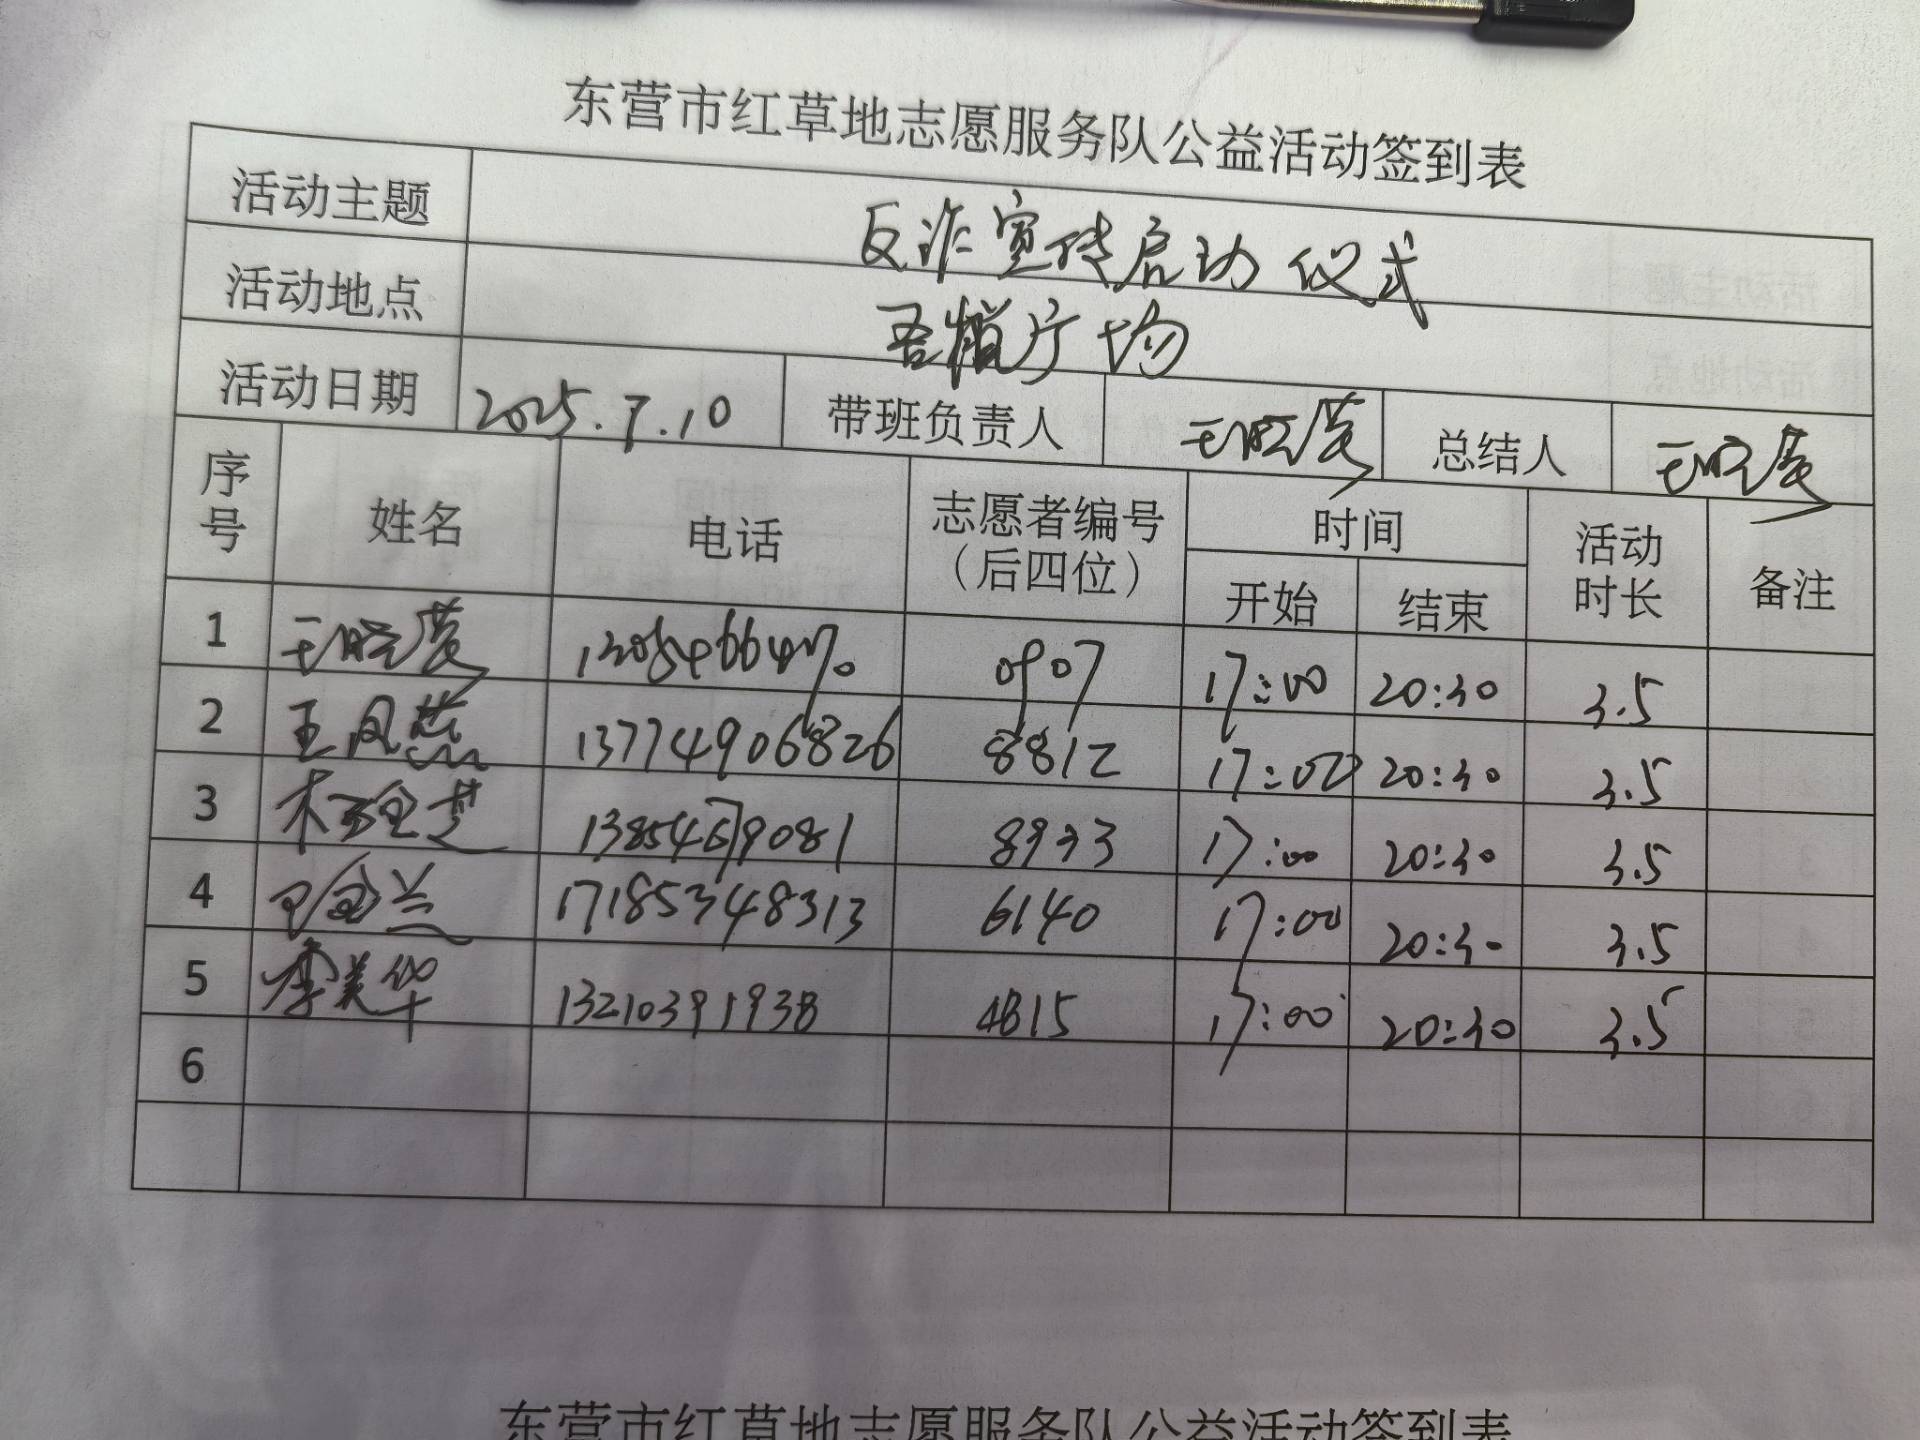 东营市红草地志愿服务队公益活动签到表
活动主题 反诈宣传启动仪式
活动地点 广场
活动日期 2025.7.10 带班负责人 王晓英 总结人 王晓英
序号 姓名 电话 志愿者编号（后四位） 时间 开始 结束 活动时长 备注
1 王晓英 0907 17:00 20:30 3.5
2 王凤燕 13774906826 8812 17:00 20:30 3.5
3 13854679081 8933 17:00 20:30 3.5
4 兰 17185348313 6140 17:00 20:30 3.5
5 李美华 13210391938 4815 17:00 20:30 3.5
6
东营市红草地志愿服务队公益活动签到表